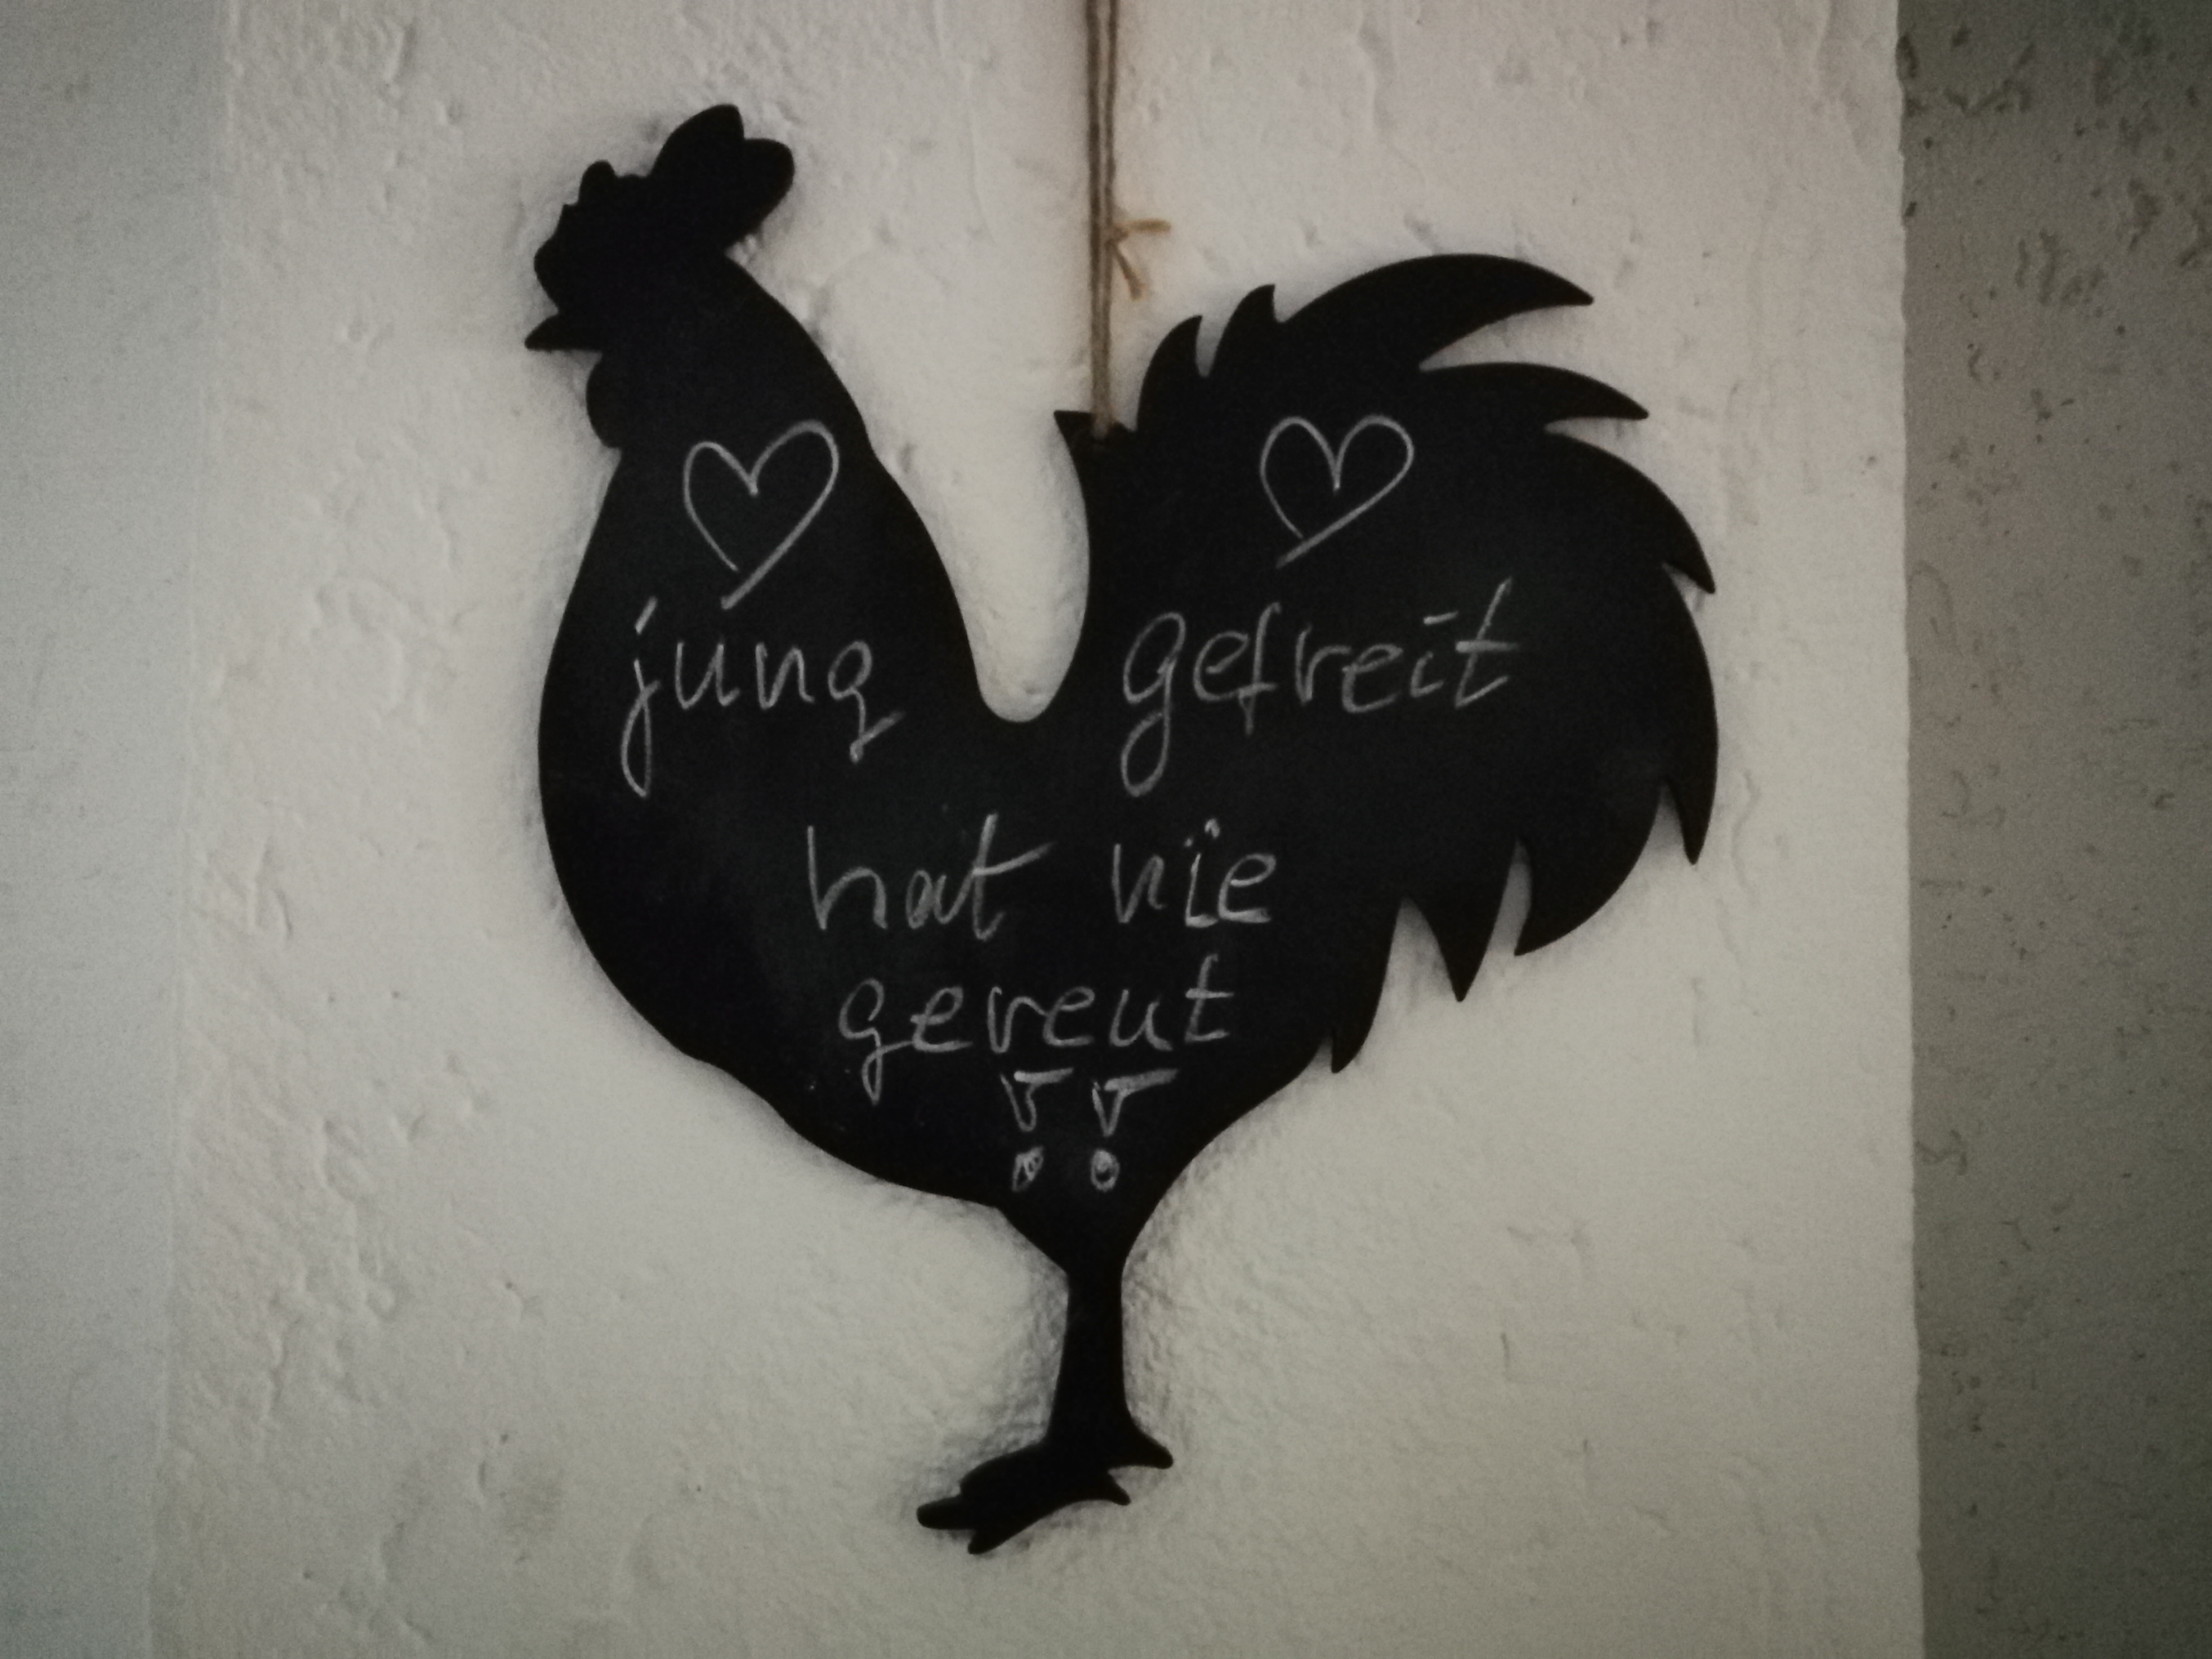 jung gefreit
hat nie
gereut
!!